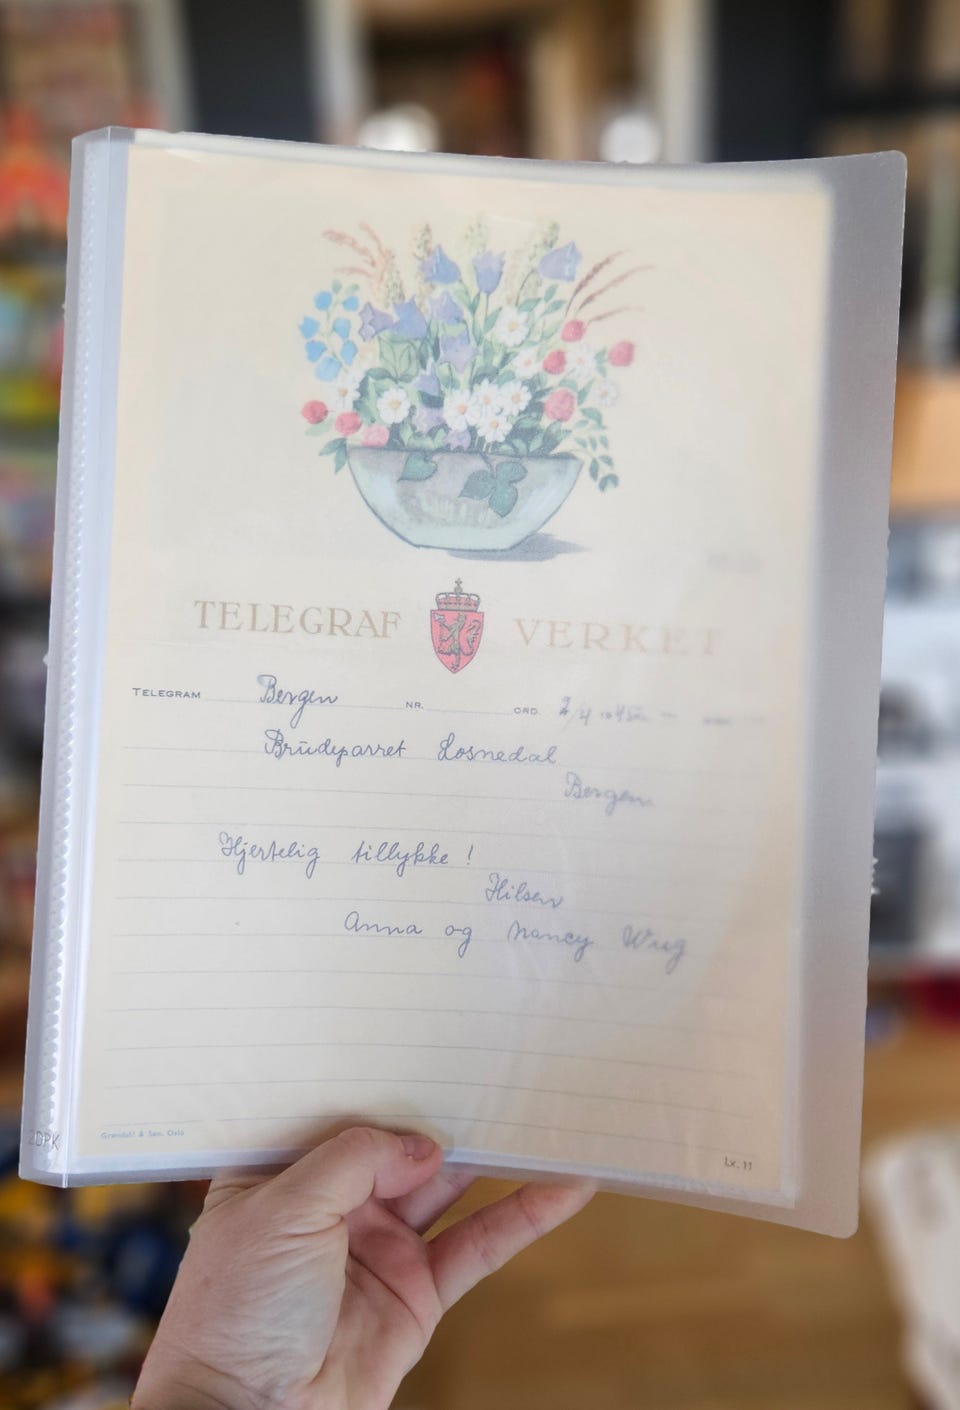 TELEGRAF VERKET
TELEGRAM Bergen NR. ORD. 2/4
Brudeparret Losnedal
Bergen
Hjertelig tillykke !
Hilsen
Anna og Nancy Wug
Grøndahl & Søn, Oslo
Lx. 11
2DPK